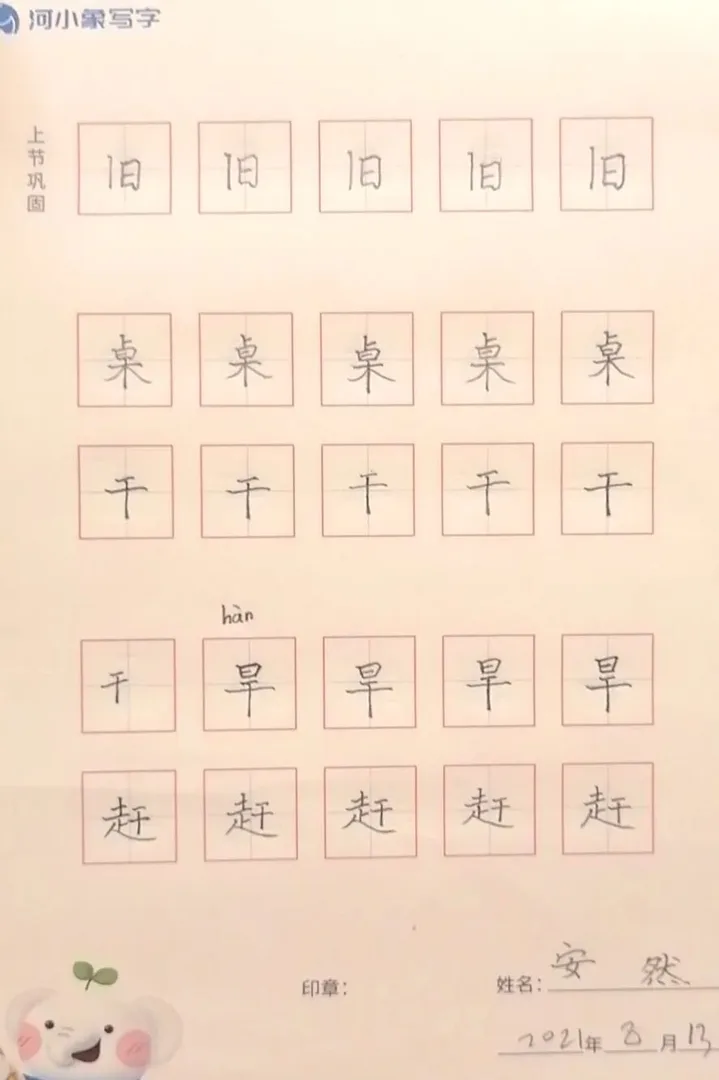 河小象写字
上节巩固
旧 旧 旧 旧 旧
桌 桌 桌 桌 桌
干 干 干 干 干
hàn
干 旱 旱 旱 旱
赶 赶 赶 赶 赶
印章: 姓名: 安 然
2021年 8月 13